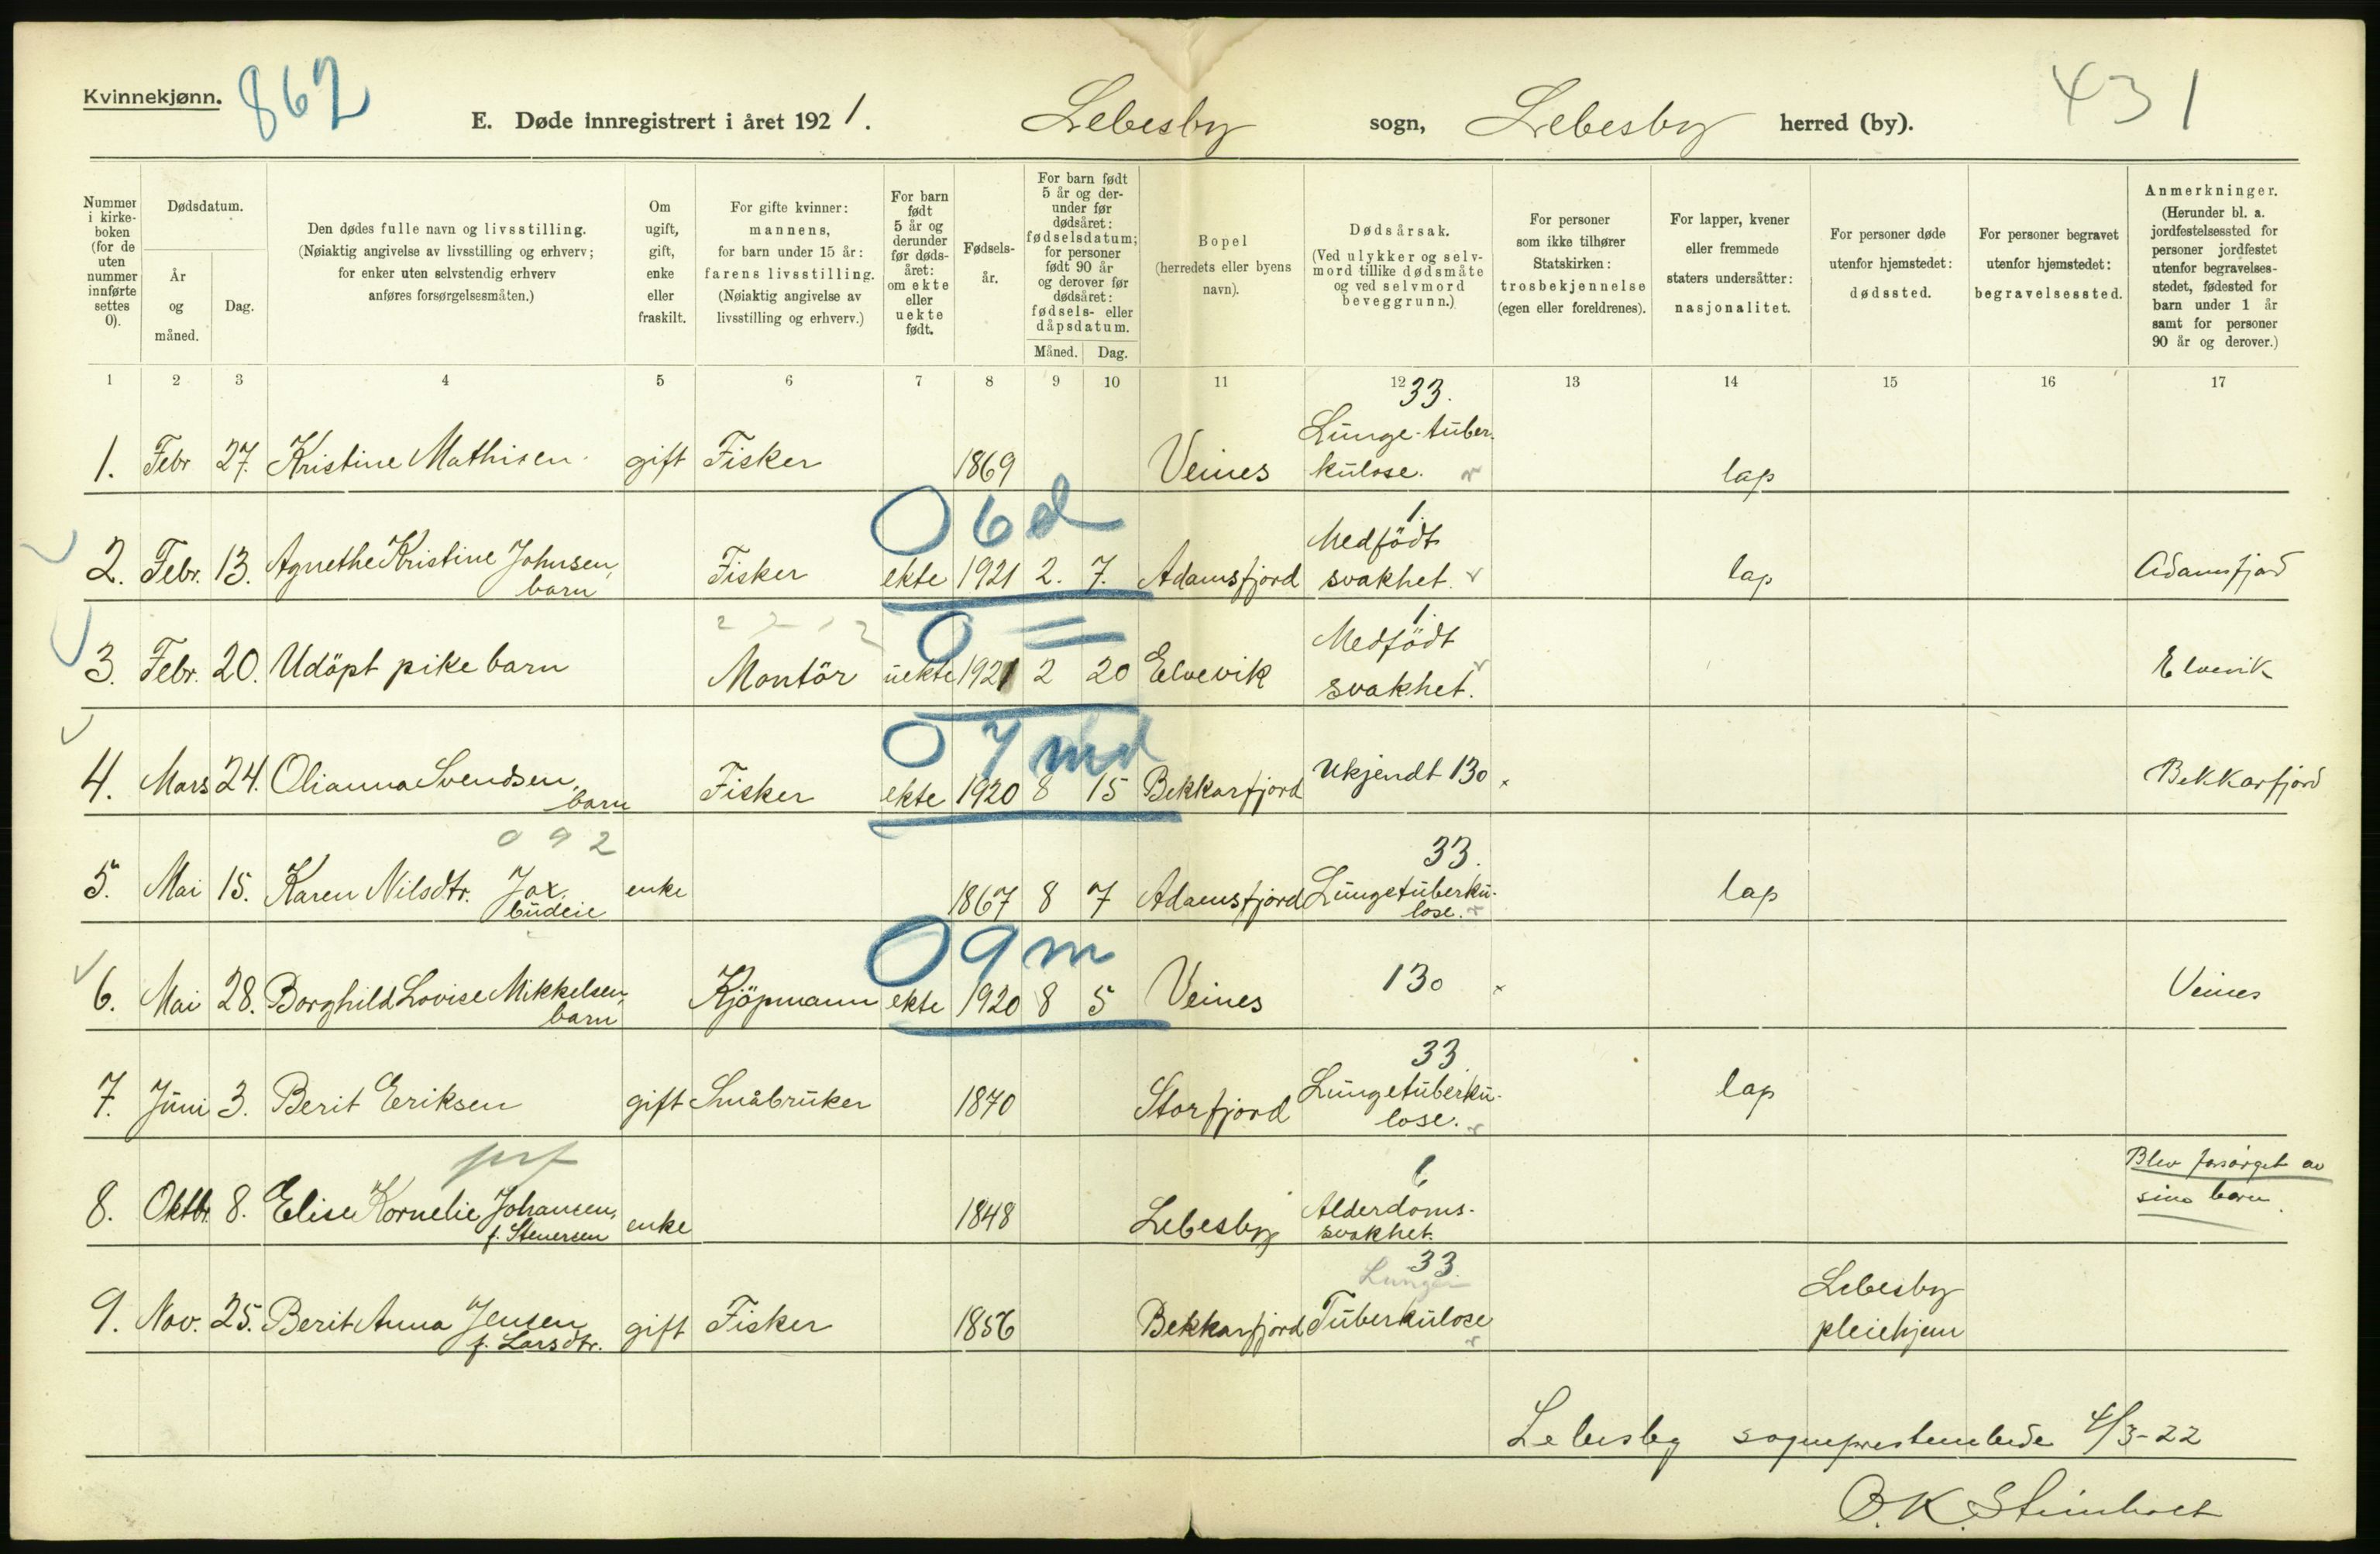 Kvinnekjønn.
862
E. Døde innregistrert i året 1921.
Lebesby sogn, Lebesby herred (by).
431
Nummer i kirkeboken (for de uten nummer innførte settes 0).
Dødsdatum.
År og måned.
Dag.
Den dødes fulle navn og livsstilling.
(Nøiaktig angivelse av livsstilling og erhverv;
for enker uten selvstendig erhverv
anføres forsørgelsesmåten.)
Om ugift, gift, enke eller fraskilt.
For gifte kvinner:
mannens,
for barn under 15 år:
farens livsstilling.
(Nøiaktig angivelse av
livsstilling og erhverv.)
For barn født 5 år og derunder før dødsåret: om ekte eller uekte født.
Fødselsår.
For barn født 5 år og derunder før dødsåret: fødselsdatum; for personer født 90 år og derover før dødsåret: fødsels- eller dåpsdatum.
Måned. Dag.
Bopel
(herredets eller byens
navn).
Dødsårsak.
(Ved ulykker og selvmord tillike dødsmåte og ved selvmord beveggrunn.)
For personer
som ikke tilhører
Statskirken:
trosbekjennelse
(egen eller foreldrenes).
For lapper, kvener
eller fremmede
staters undersåtter:
nasjonalitet.
For personer døde
utenfor hjemstedet:
dødssted.
For personer begravet
utenfor hjemstedet:
begravelsessted.
Anmerkninger.
(Herunder bl. a.
jordfestelsessted for
personer jordfestet
utenfor begravelses-
stedet, fødested for
barn under 1 år
samt for personer
90 år og derover.)
1 2 3 4 5 6 7 8 9 10 11 12 13 14 15 16 17
33.
1. Febr 27. Kristine Mathisen gift Fisker 1869 Veines Lunge-tuber.kulose. lap
0 6 d
1.
2. Febr. 13. Agnethe Kristine Johnsen, barn Fisker ekte 1921 2. 7. Adamsfjord Medfödt svakhet. lap Adamsfjord
0 =
1.
3. Febr. 20. Udöpt pike barn Montör uekte 1921 2 20 Elvevik Medfödt svakhet. Elvevik
0 7 md
4. Mars 24. Olianna Svendsen, barn Fisker ekte 1920 8 15 Bekkarfjord Ukjendt 130 Bekkarfjord
0 9 2
33.
5. Mai 15. Karen Nilsdtr. Jox, budeie enke 1867 8 7 Adamsfjord Lungetuberku-lose. lap
0 9 m
6. Mai 28. Borghild Lovise Mikkelsen, barn Kjöpmann ekte 1920 8 5 Veines 130 Veines
33
7. Juni 3. Berit Eriksen gift Småbruker 1870 Storfjord Lungetuberku-lose. lap
8. Oktbr 8. Elise Kornelie Johansen, f. Stenersen enke 1848 Lebesby Alderdoms-svakhet. Blev forsörget av sine barn.
33
Lunge
9. Nov. 25. Berit Anna Jensen f. Larsdtr. gift Fisker 1856 Bekkarfjord Tuberkulose Lebesby pleiehjem
Lebesby sogneprestembede 4/3-22
O. K. Steinholt